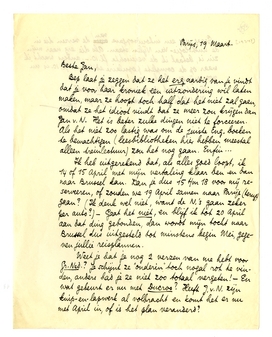 Parijs, 19 Maart.
Beste Jan,
Bep laat je zeggen dat ze het erg aardig van je vindt
dat je voor haar kroniek een uitzondering wil laten
maken, maar ze hoopt toch half dat het niet zal gaan,
omdat ze het idioot vindt dat ze meer zou krijgen dan
Jan v. N. Het is beter zulke dingen niet te forceeren.
Als het niet zoo lastig was om de juiste Eng. boeken
te bemachtigen (leesbibliotheken hier hebben meestal
alleen treinlectuur) zou het nog gaan. Enfin...
Ik heb uitgerekend dat, als alles goed loopt, ik
14 of 15 April met mijn vertaling klaar ben en dan
naar Brussel kan. Zou je dus 15 tot 18 voor mij re-
serveeren, of zouden we 19 April samen naar Parijs kunnen
gaan? (Ik denk wel niet, want de N.'s gaan zeker
per auto?) Gaat het niet, en blijf ik tot 20 April
aan dat ding gebonden, dan wordt mijn tocht naar
Brussel dus uitgesteld tot minstens begin Mei, gege-
ven jullie reisplannen.
Weet je dat je nog 2 verzen van me hebt voor
Gr. Ned.? Je schijnt ze 'onderin' toch nogal rot te vin-
den, anders had je ze niet zoo totaal vergeten! — En
wat gebeurt er nu met Ducroo? Heeft J. v. N. zijn
knip- en lapwerk al volbracht en komt het er nu
met April in, of is het plan veranderd?